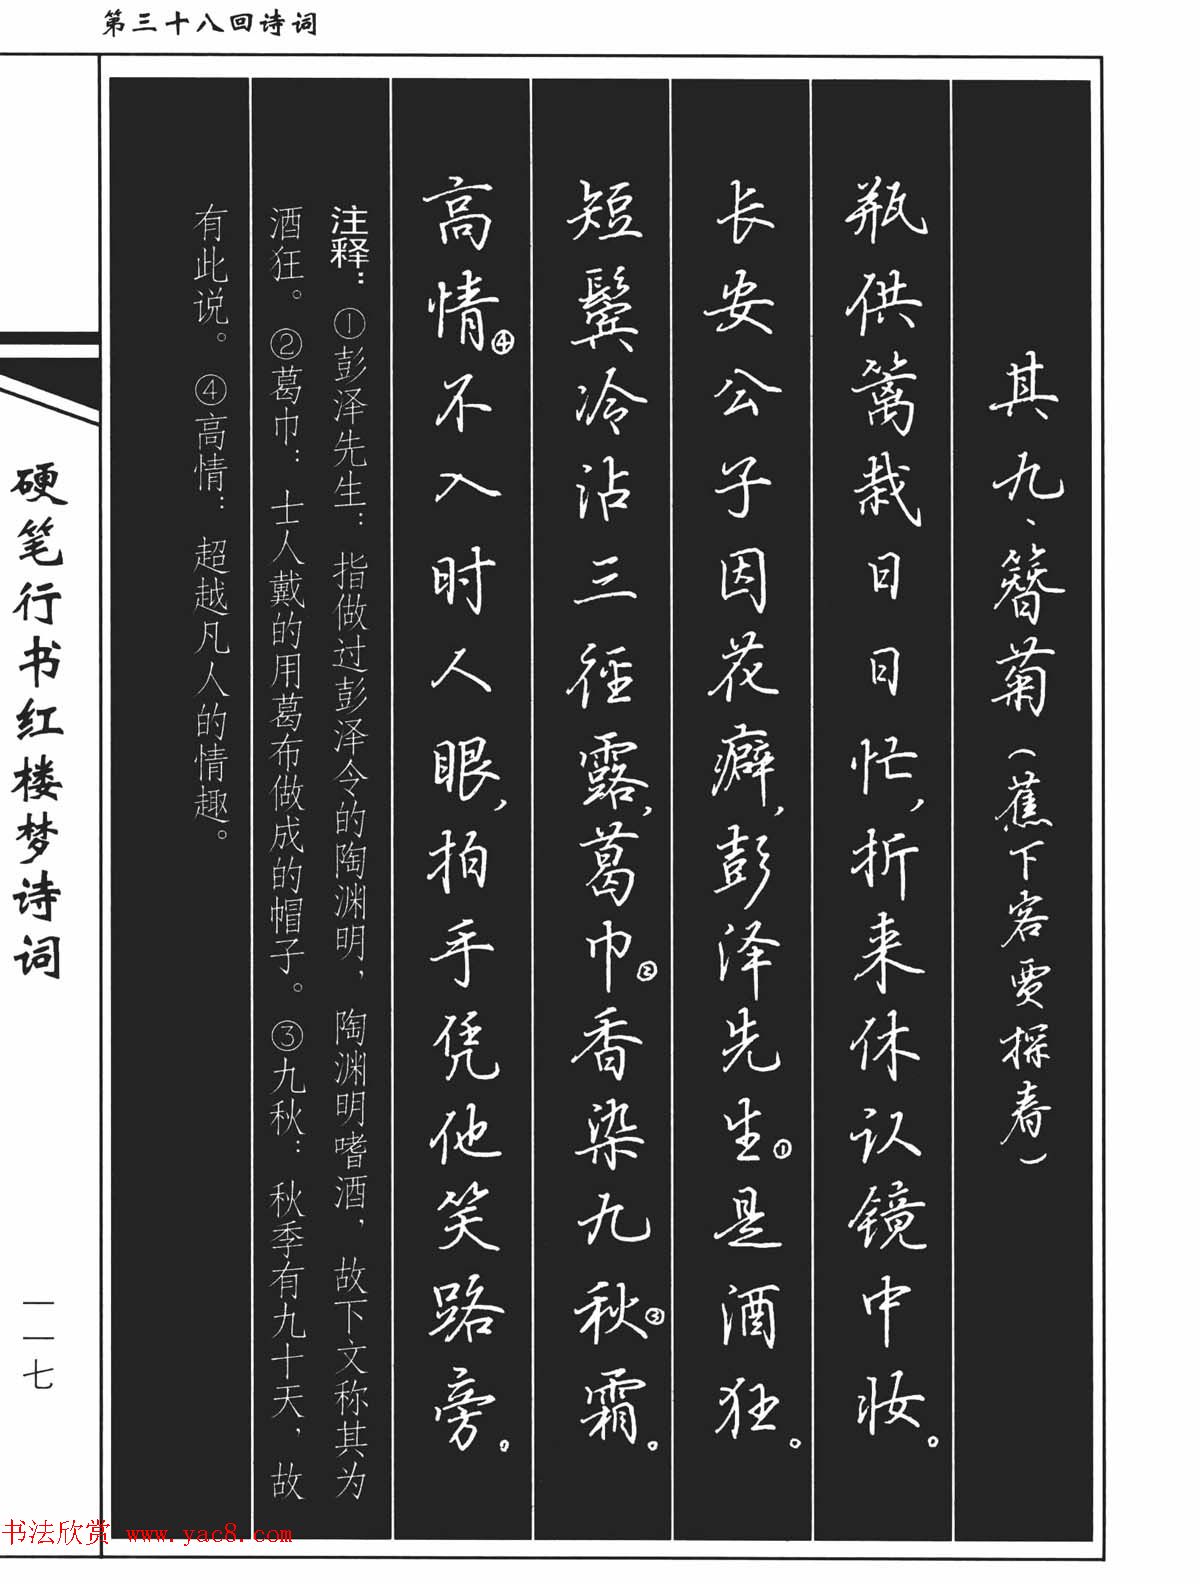 第三十八回诗词
其九、簪菊（蕉下客贾探春）
瓶供篱栽日日忙，折来休认镜中妆。
长安公子因花癖，彭泽先生①是酒狂。
短鬓冷沾三径露，葛巾②香染九秋③霜。
高情④不入时人眼，拍手凭他笑路旁。
注释：①彭泽先生：指做过彭泽令的陶渊明，陶渊明嗜酒，故下文称其为
酒狂。②葛巾：士人戴的用葛布做成的帽子。③九秋：秋季有九十天，故
有此说。④高情：超越凡人的情趣。
硬笔行书红楼梦诗词
一一七
书法欣赏 www.yac8.com